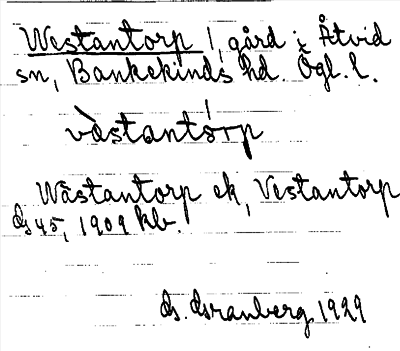 Westantorp /, gård i Åtvid
sn, Bankekinds hd. Ögl. l.
vàstantórp
Wästantorp ek, Vestantorp
1909 kb.
1929